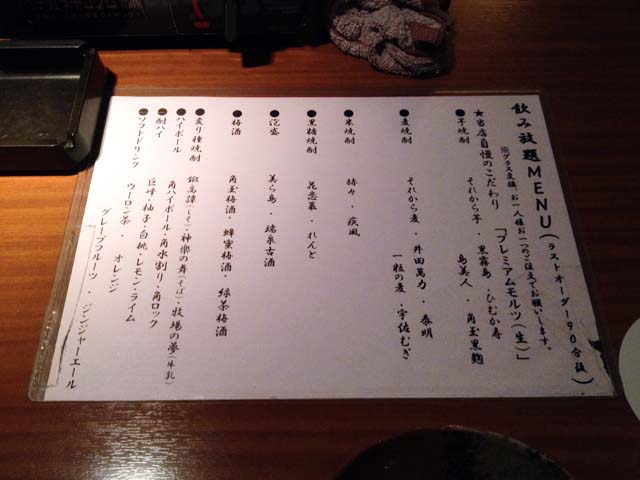 飲み放題MENU(ラストオーダー90分後)
※グラス交換、お一人様お一つのご注文でお願いします。
★当店自慢のこだわり 「プレミアムモルツ(生)」
●芋焼酎 それから芋・黒霧島・ひむか寿
島美人・角玉黒麹
●麦焼酎 それから麦・井田萬力・泰明
一粒の麦・宇佐むぎ
●米焼酎 待々・疾風
●黒糖焼酎 花恋慕・れんと
●泡盛 美ら島・瑞泉古酒
●梅酒 角玉梅酒・蜂蜜梅酒・緑茶梅酒
●変り種焼酎 鍛高譚(しそ)・神楽の舞(そば)・牧場の夢(牛乳)
●ハイボール 角ハイボール・角水割り・角ロック
●酎ハイ 巨峰・柚子・白桃・レモン・ライム
●ソフトドリンク ウーロン茶・オレンジ
グレープフルーツ・ジンジャーエール